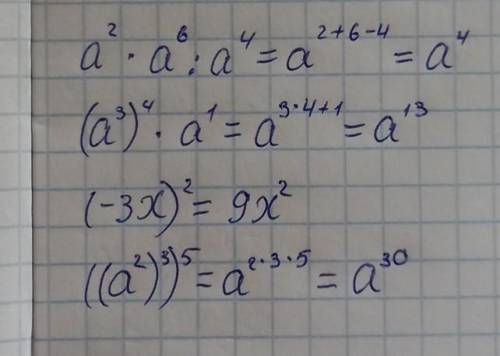 a² · a⁶ : a⁴ = a²⁺⁶⁻⁴ = a⁴
(a³)⁴ · a¹ = a³˙⁴⁺¹ = a¹³
(-3x)² = 9x²
((a²)³)⁵ = a²˙³˙⁵ = a³⁰